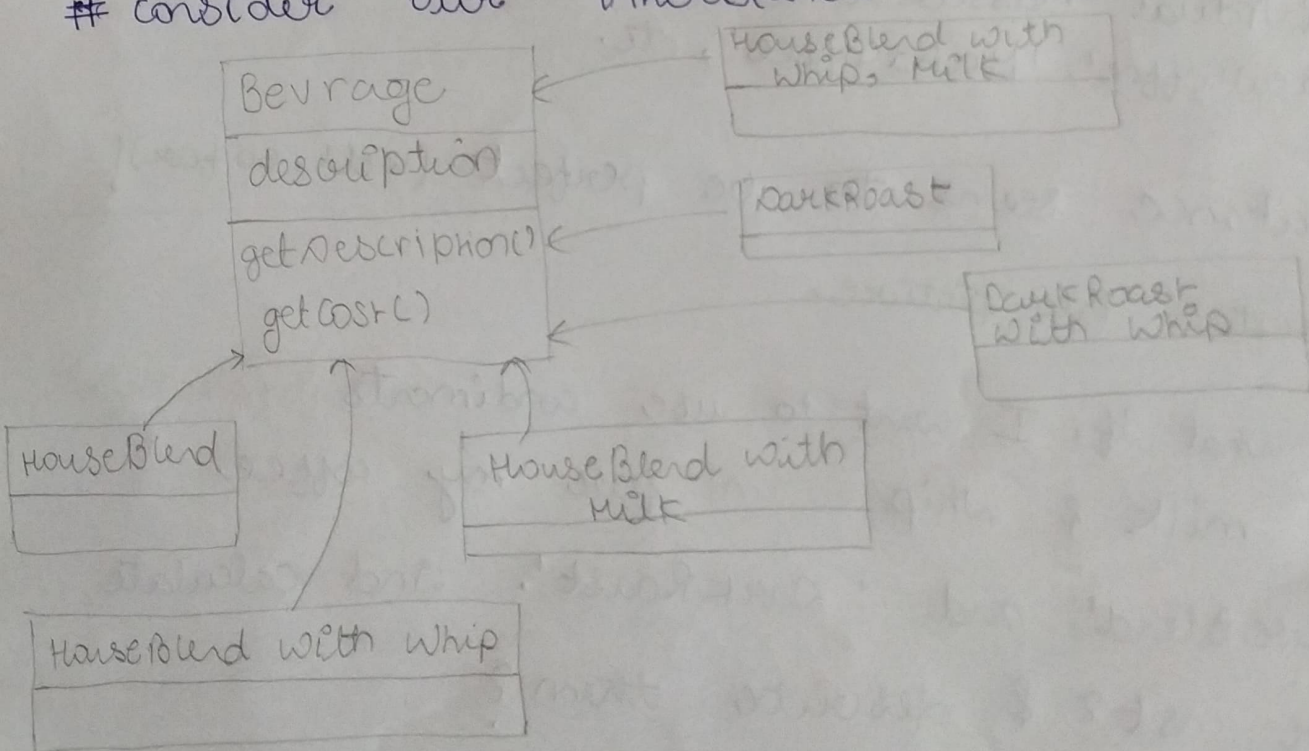 # Consider our
Bevrage
description
getDescription()
getCosr()
HouseBlend with
Whip, Milk
DarkRoast
DarkRoast
with whip
HouseBlend
HouseBlend with
Milk
HouseBlend with Whip